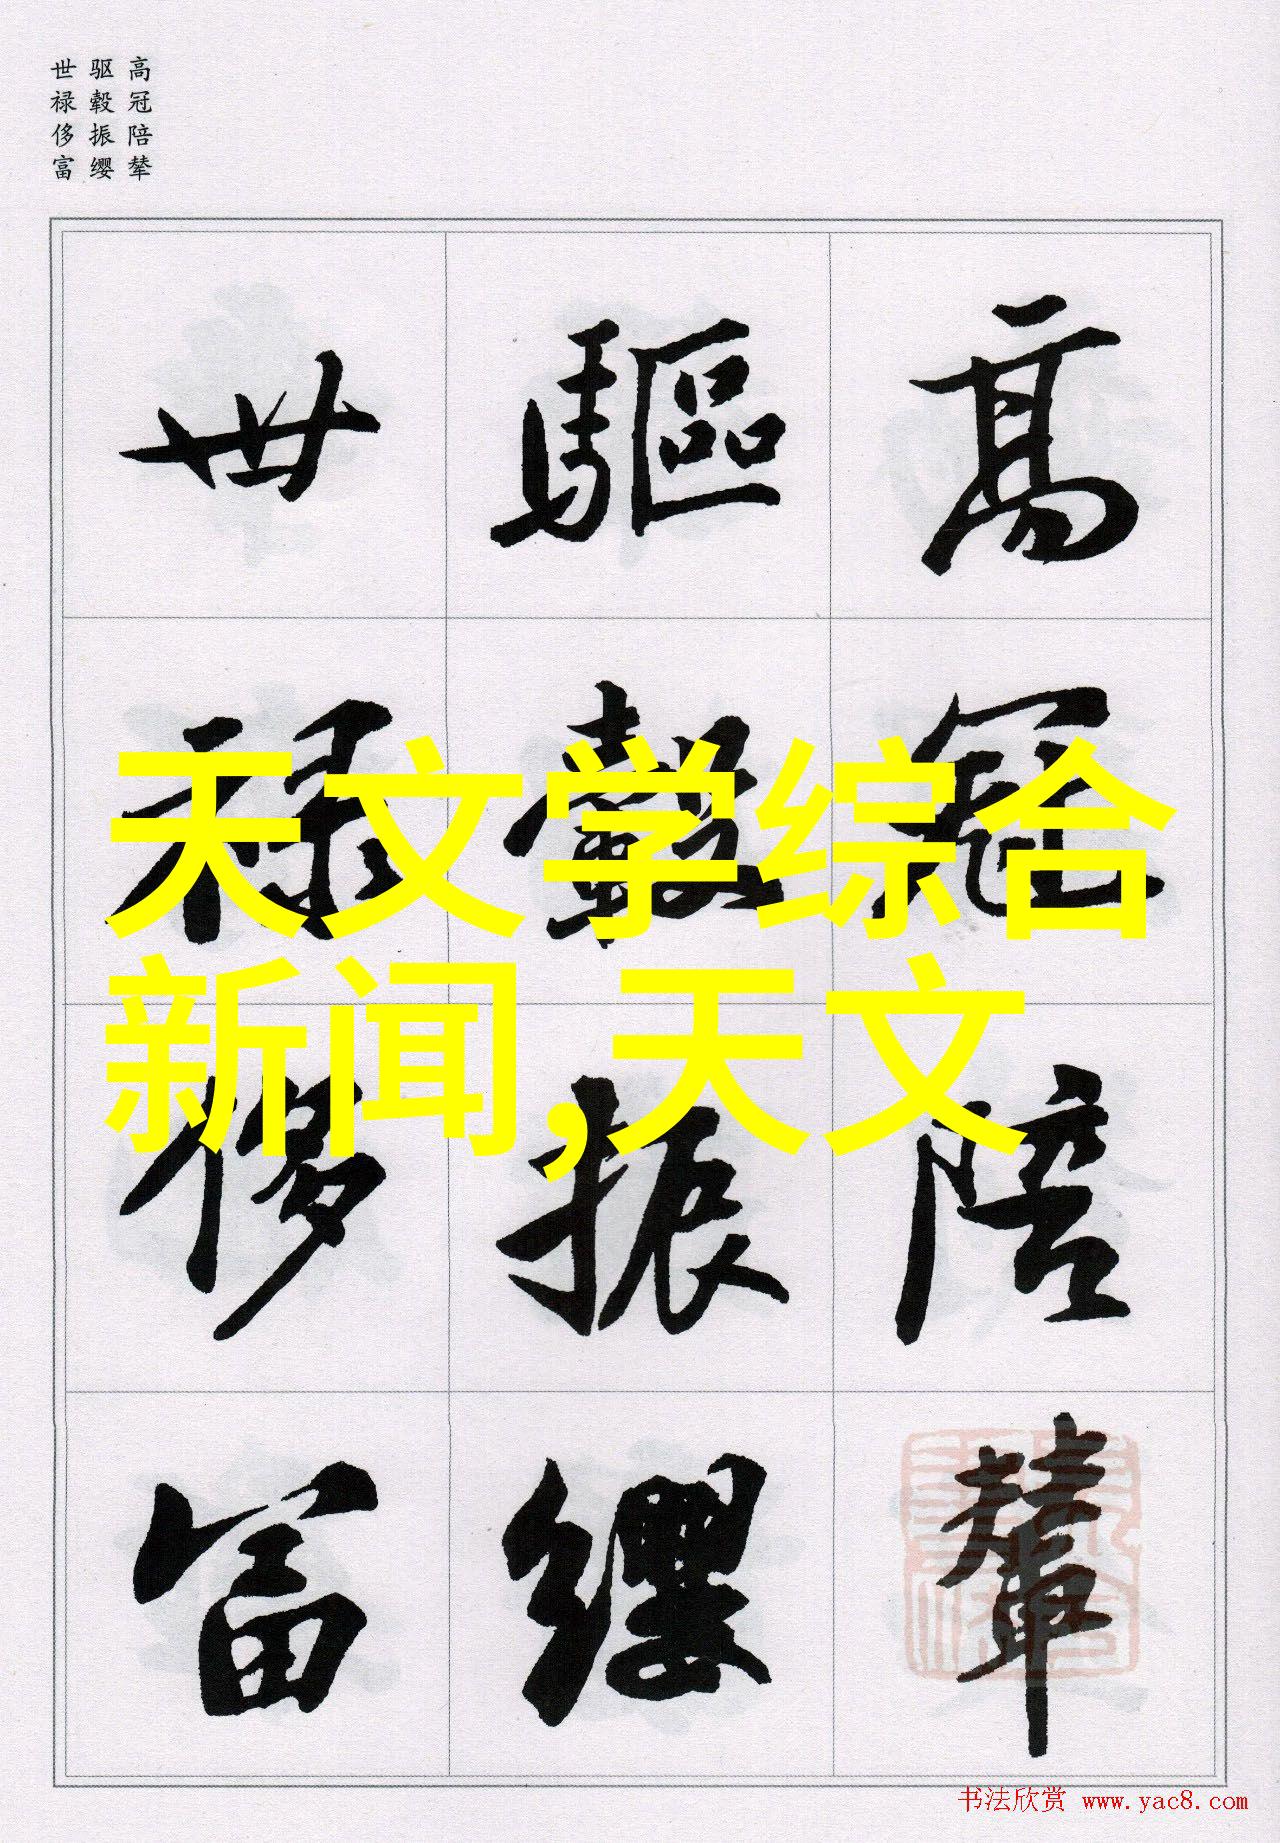 高冠陪辇
驱毂振缨
世禄侈富
高冠陪輦
驅轂振纓
世禄侈富
天文学综合
新闻,天文
书法欣赏 www.yac8.com